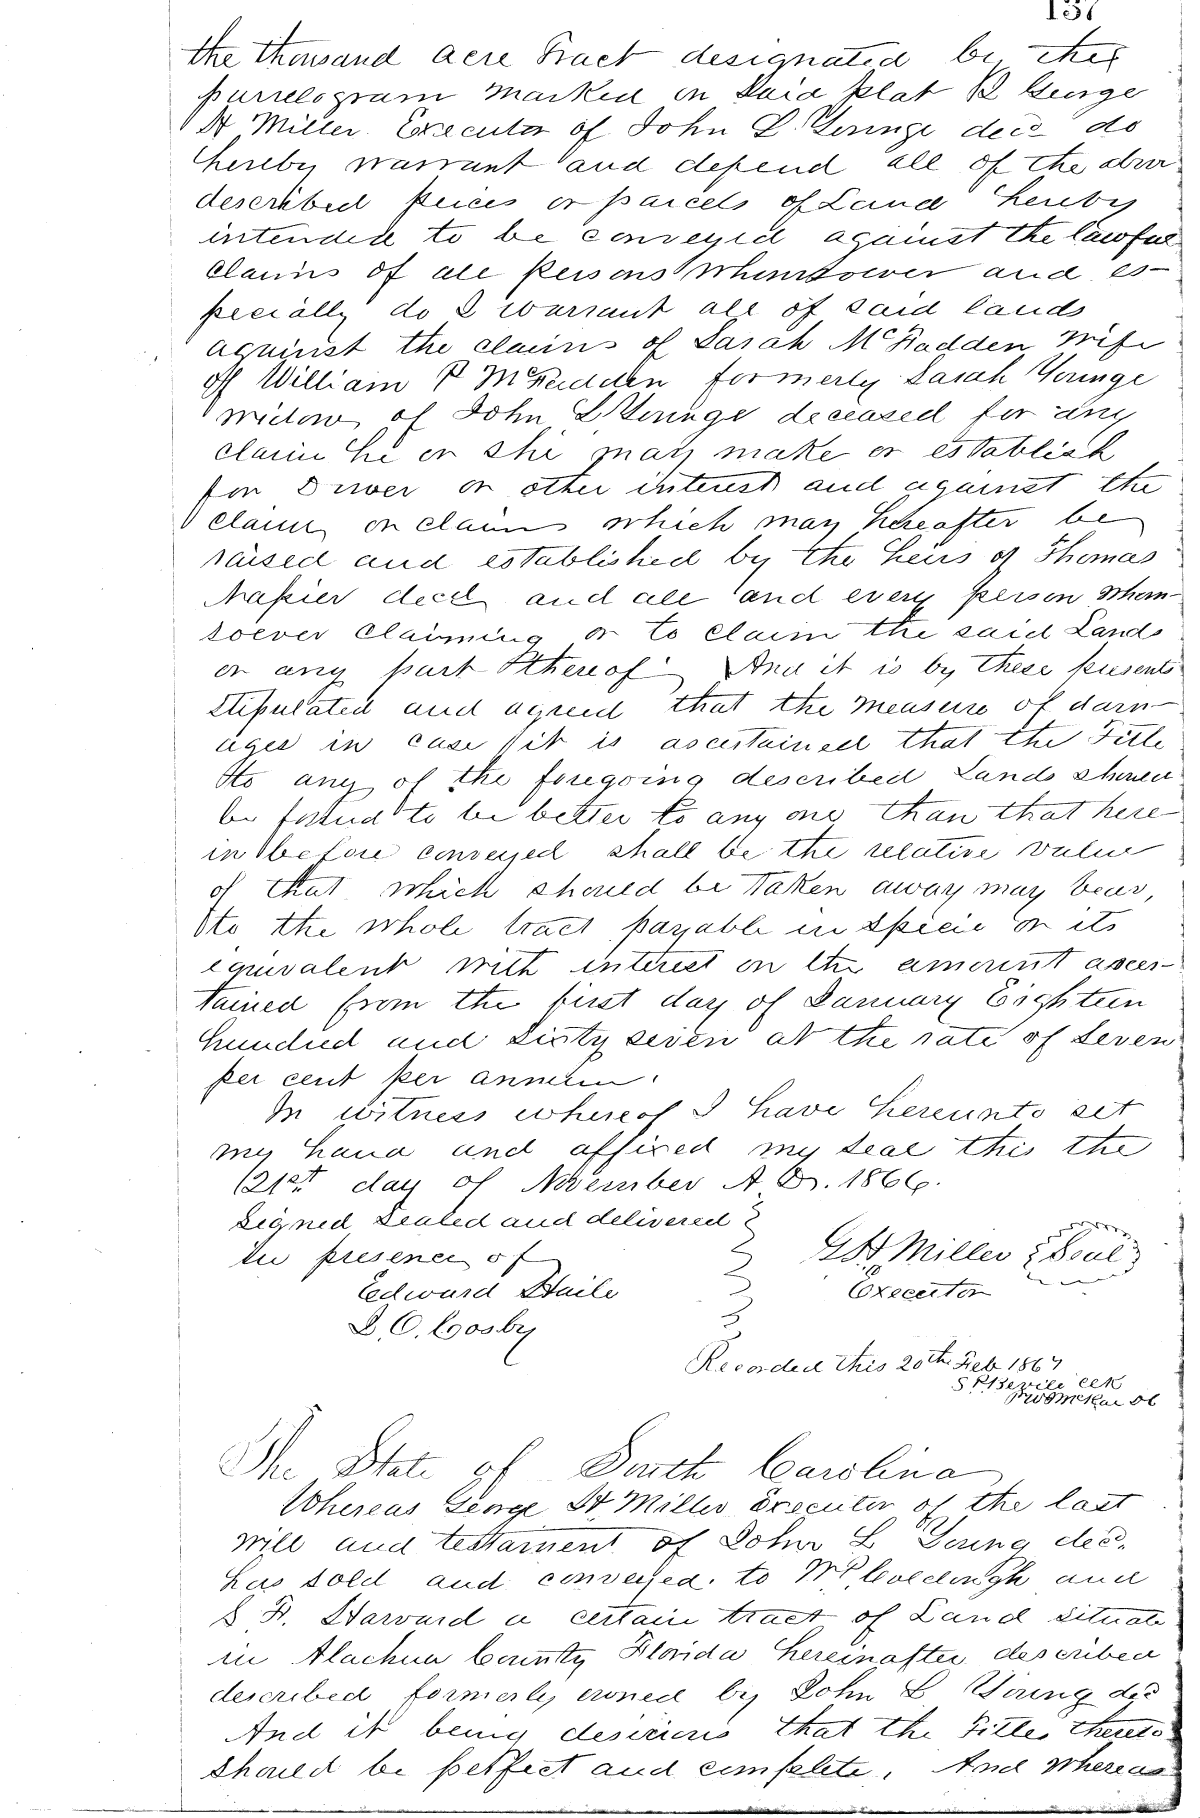 137
the thousand acre Tract designated by the
parrelogram marked on said plat B George
H Miller Executor of John L. Younge decd do
hereby warrant and defend all of the abov
described peices or parcels of Land hereby
intended to be conveyed against the lawful
claims of all persons whomsoever and es-
pecially do I warrant all of said lands
against the claims of Sarah McFadden wife
of William P McFadden formerly Sarah Younge
widow of John L Younge deceased for any
claim he or she may make or establish
for Dower or other interest and against the
claim or claims which may hereafter be
raised and established by the heirs of Thomas
Napier decd and all and every person whom-
soever claiming or to claim the said Lands
or any part thereof. And it is by these presents
stipulated and agreed that the measure of dam-
ages in case it is ascertained that the Title
to any of the foregoing described Lands should
be found to be better to any one than that here
in before conveyed shall be the relative value
of that which should be taken away may bear,
to the whole tract payable in specie or its
equivalent with interest on the amount ascer-
tained from the first day of January Eighteen
hundred and Sixty seven at the rate of Seven
per cent per annum.
In witness whereof I have hereunto set
my hand and affixed my seal this the
21st day of November A.D. 1866.
Signed Sealed and delivered
in presence of
G H Miller Seal
Executor
Edward Haile
D. O. Cosby
Recorded this 20th Feb 1867
Clk
The State of South Carolina
Whereas George H. Miller Executor of the last
will and testament of John L Young decd.
has sold and conveyed to and
S. F. Harvard a certain tract of Land situate
in Alachua County Florida hereinafter described
described formerly owned by John L Young decd
And it being desirious that the Titles thereto
should be perfect and complete. And whereas